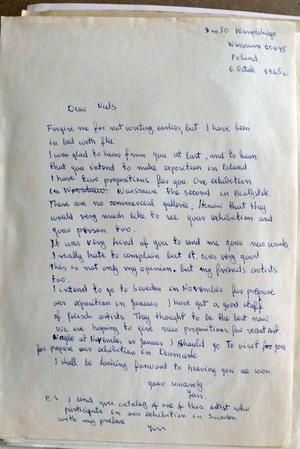 Warszawa 00645
Poland
6 Octob. 1985 r.
Dear Niels
Forgive me for not writing earlier, but I have been
in bed with flu
I was glad to hear from you at last, and to learn
that you intend to make exposition in Poland
I have two propositions for you. One exhibition
in Warszawa the second in Białystok
There are no commercial galleries, I know that they
would very much like to see your exhibition and
your person too.
It was very kind of you to send me your new works
I really hate to complain but it was very good
This is not only my opinion, but my friends artists
too.
I intend to go to Sweden in November for prepare
our exposition in January I have got a good staff
of Polish artists They thought to be the best now.
We are hoping to give new propositions for
at November or January I should go to visit you
for prepare our exhibition in Denmark
I shall be looking forward to hearing you as soon.
your sincerely
Jan.
P.S I send you catalog of one of this artist who
participate in our exhibition in Sweden
with my preface
Jan